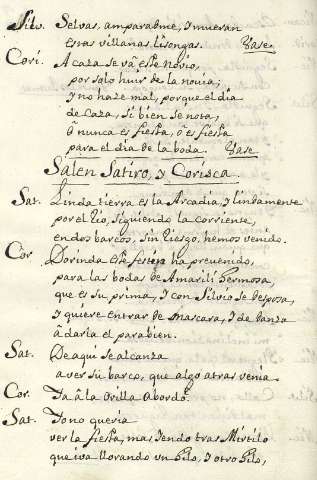 Silv. Selvas, amparadme, y mueran
estas villanas lisongas. Vase
Cori. A caza se va este Novio,
por solo huir de la novia;
y no haze mal, porque el dia
de caza, si bien se nota,
ô nunca es fiesta, ô es fiesta
para el dia de la boda. Vase
Salen Satiro, y Corisca.
Sat. Linda tierra es la Arcadia, y lindamente
por el Rio, siguiendo la corriente,
en dos barcos, sin riesgo, hemos venido.
Cor. Dorinda este festin ha prevenido,
para las bodas de Amarili hermosa,
que es su prima, y con Silvio se desposa,
y quiere entrar de mascara, y de danza
â darla el parabien.
Sat. De aqui se alcanza
a ver su barco, que algo atras venia.
Cor. Ya â la orilla abordô.
Sat. Yo no queria
ver la fiesta, mas yendo tras Mirtilo
que iva llorando un hilo, y otro hilo,